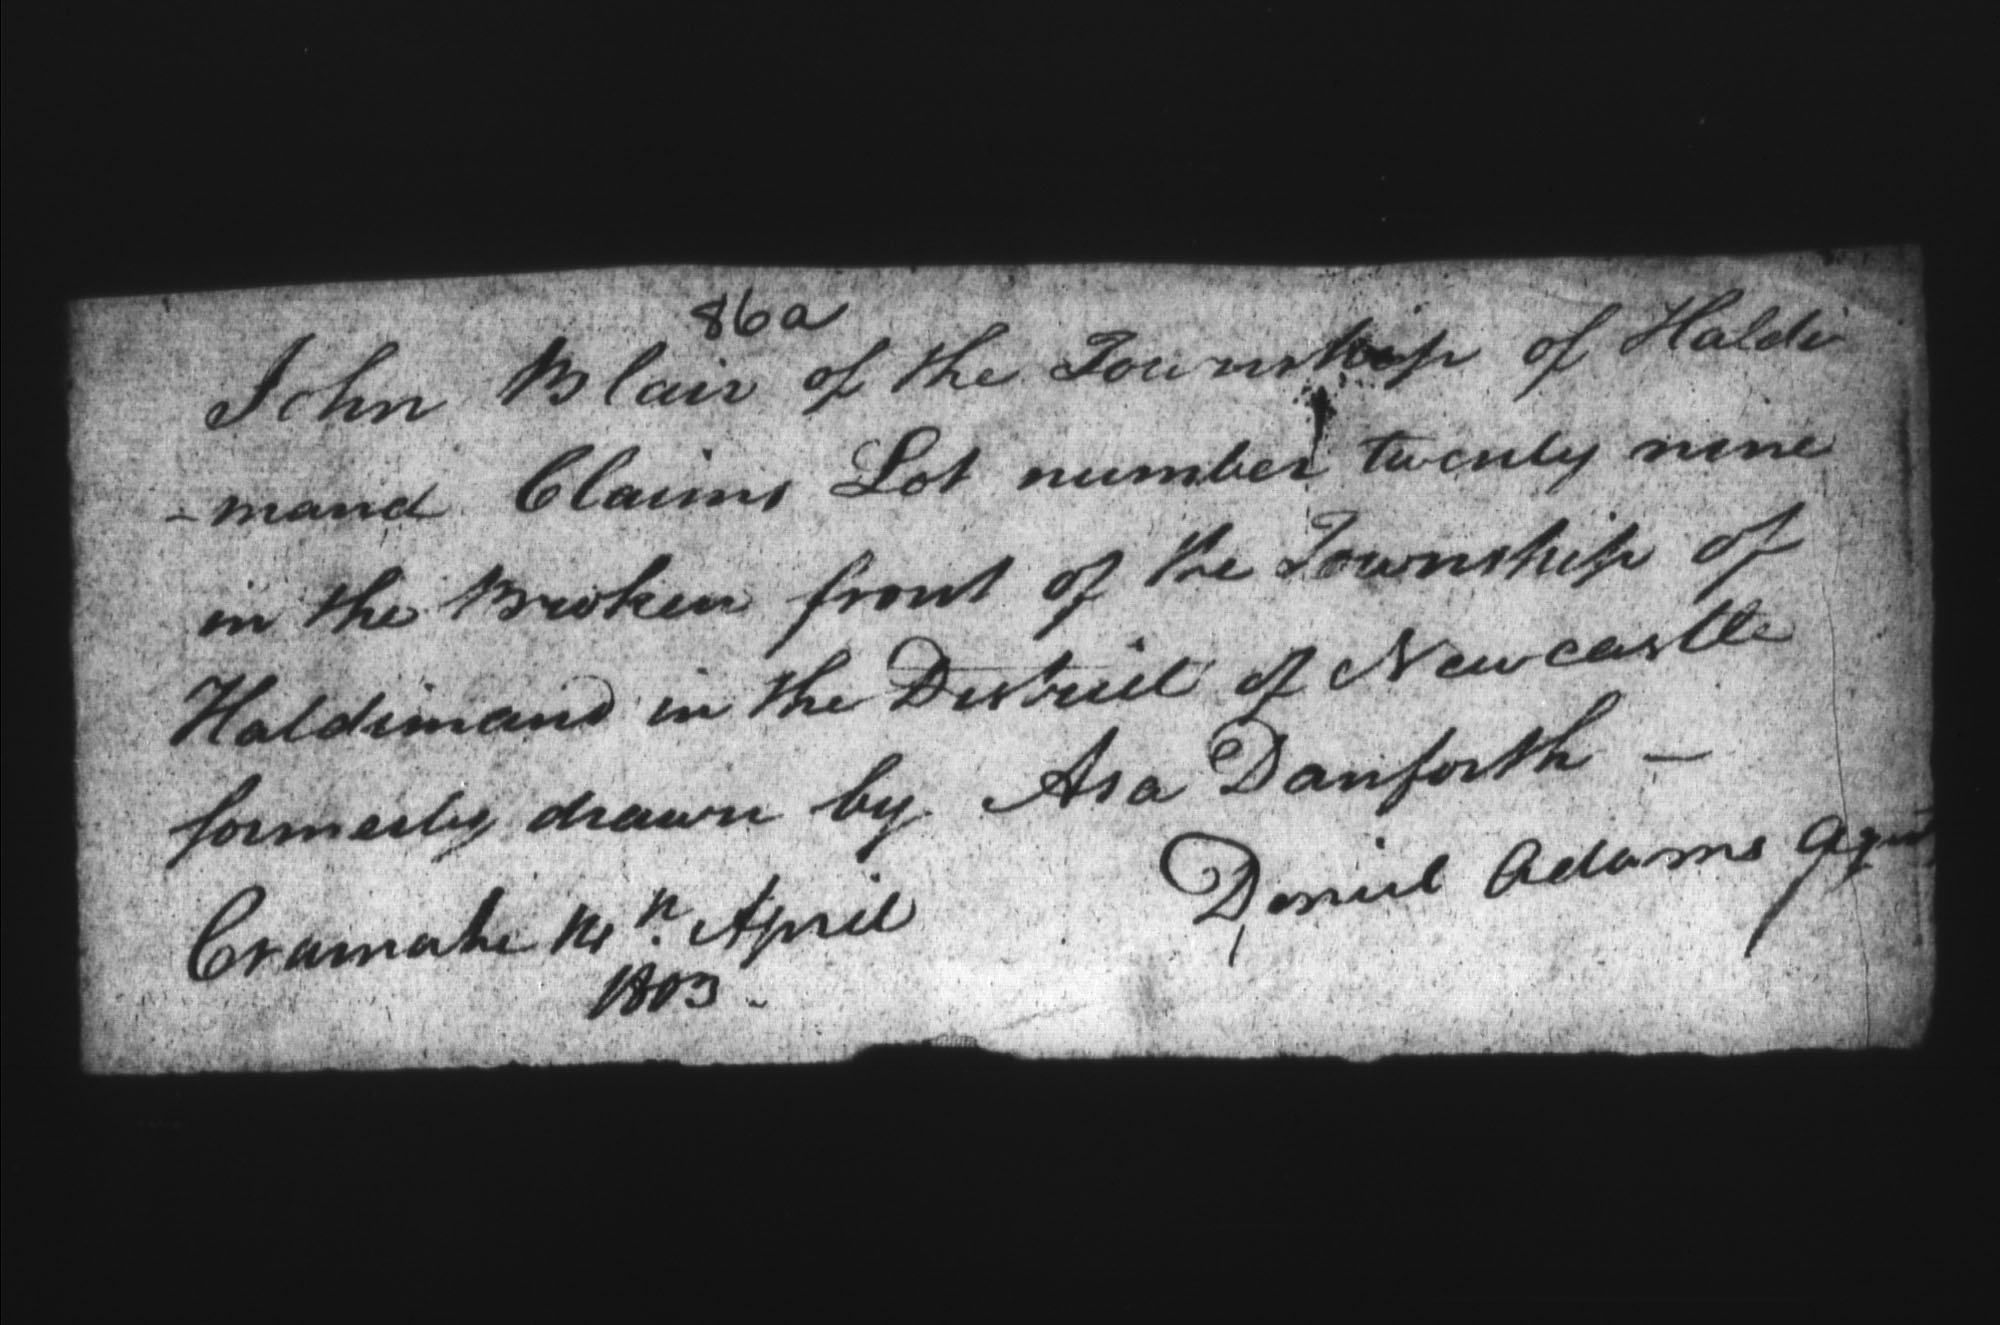 86a
John Blair of the Township of Haldi
-mand Claims Lot number twenty nine
in the Broken front of the Township of
Haldimand in the District of Newcastle
formerly drawn by Asa Danforth —
Daniel Adams
Cramahe 14th. April
1803.